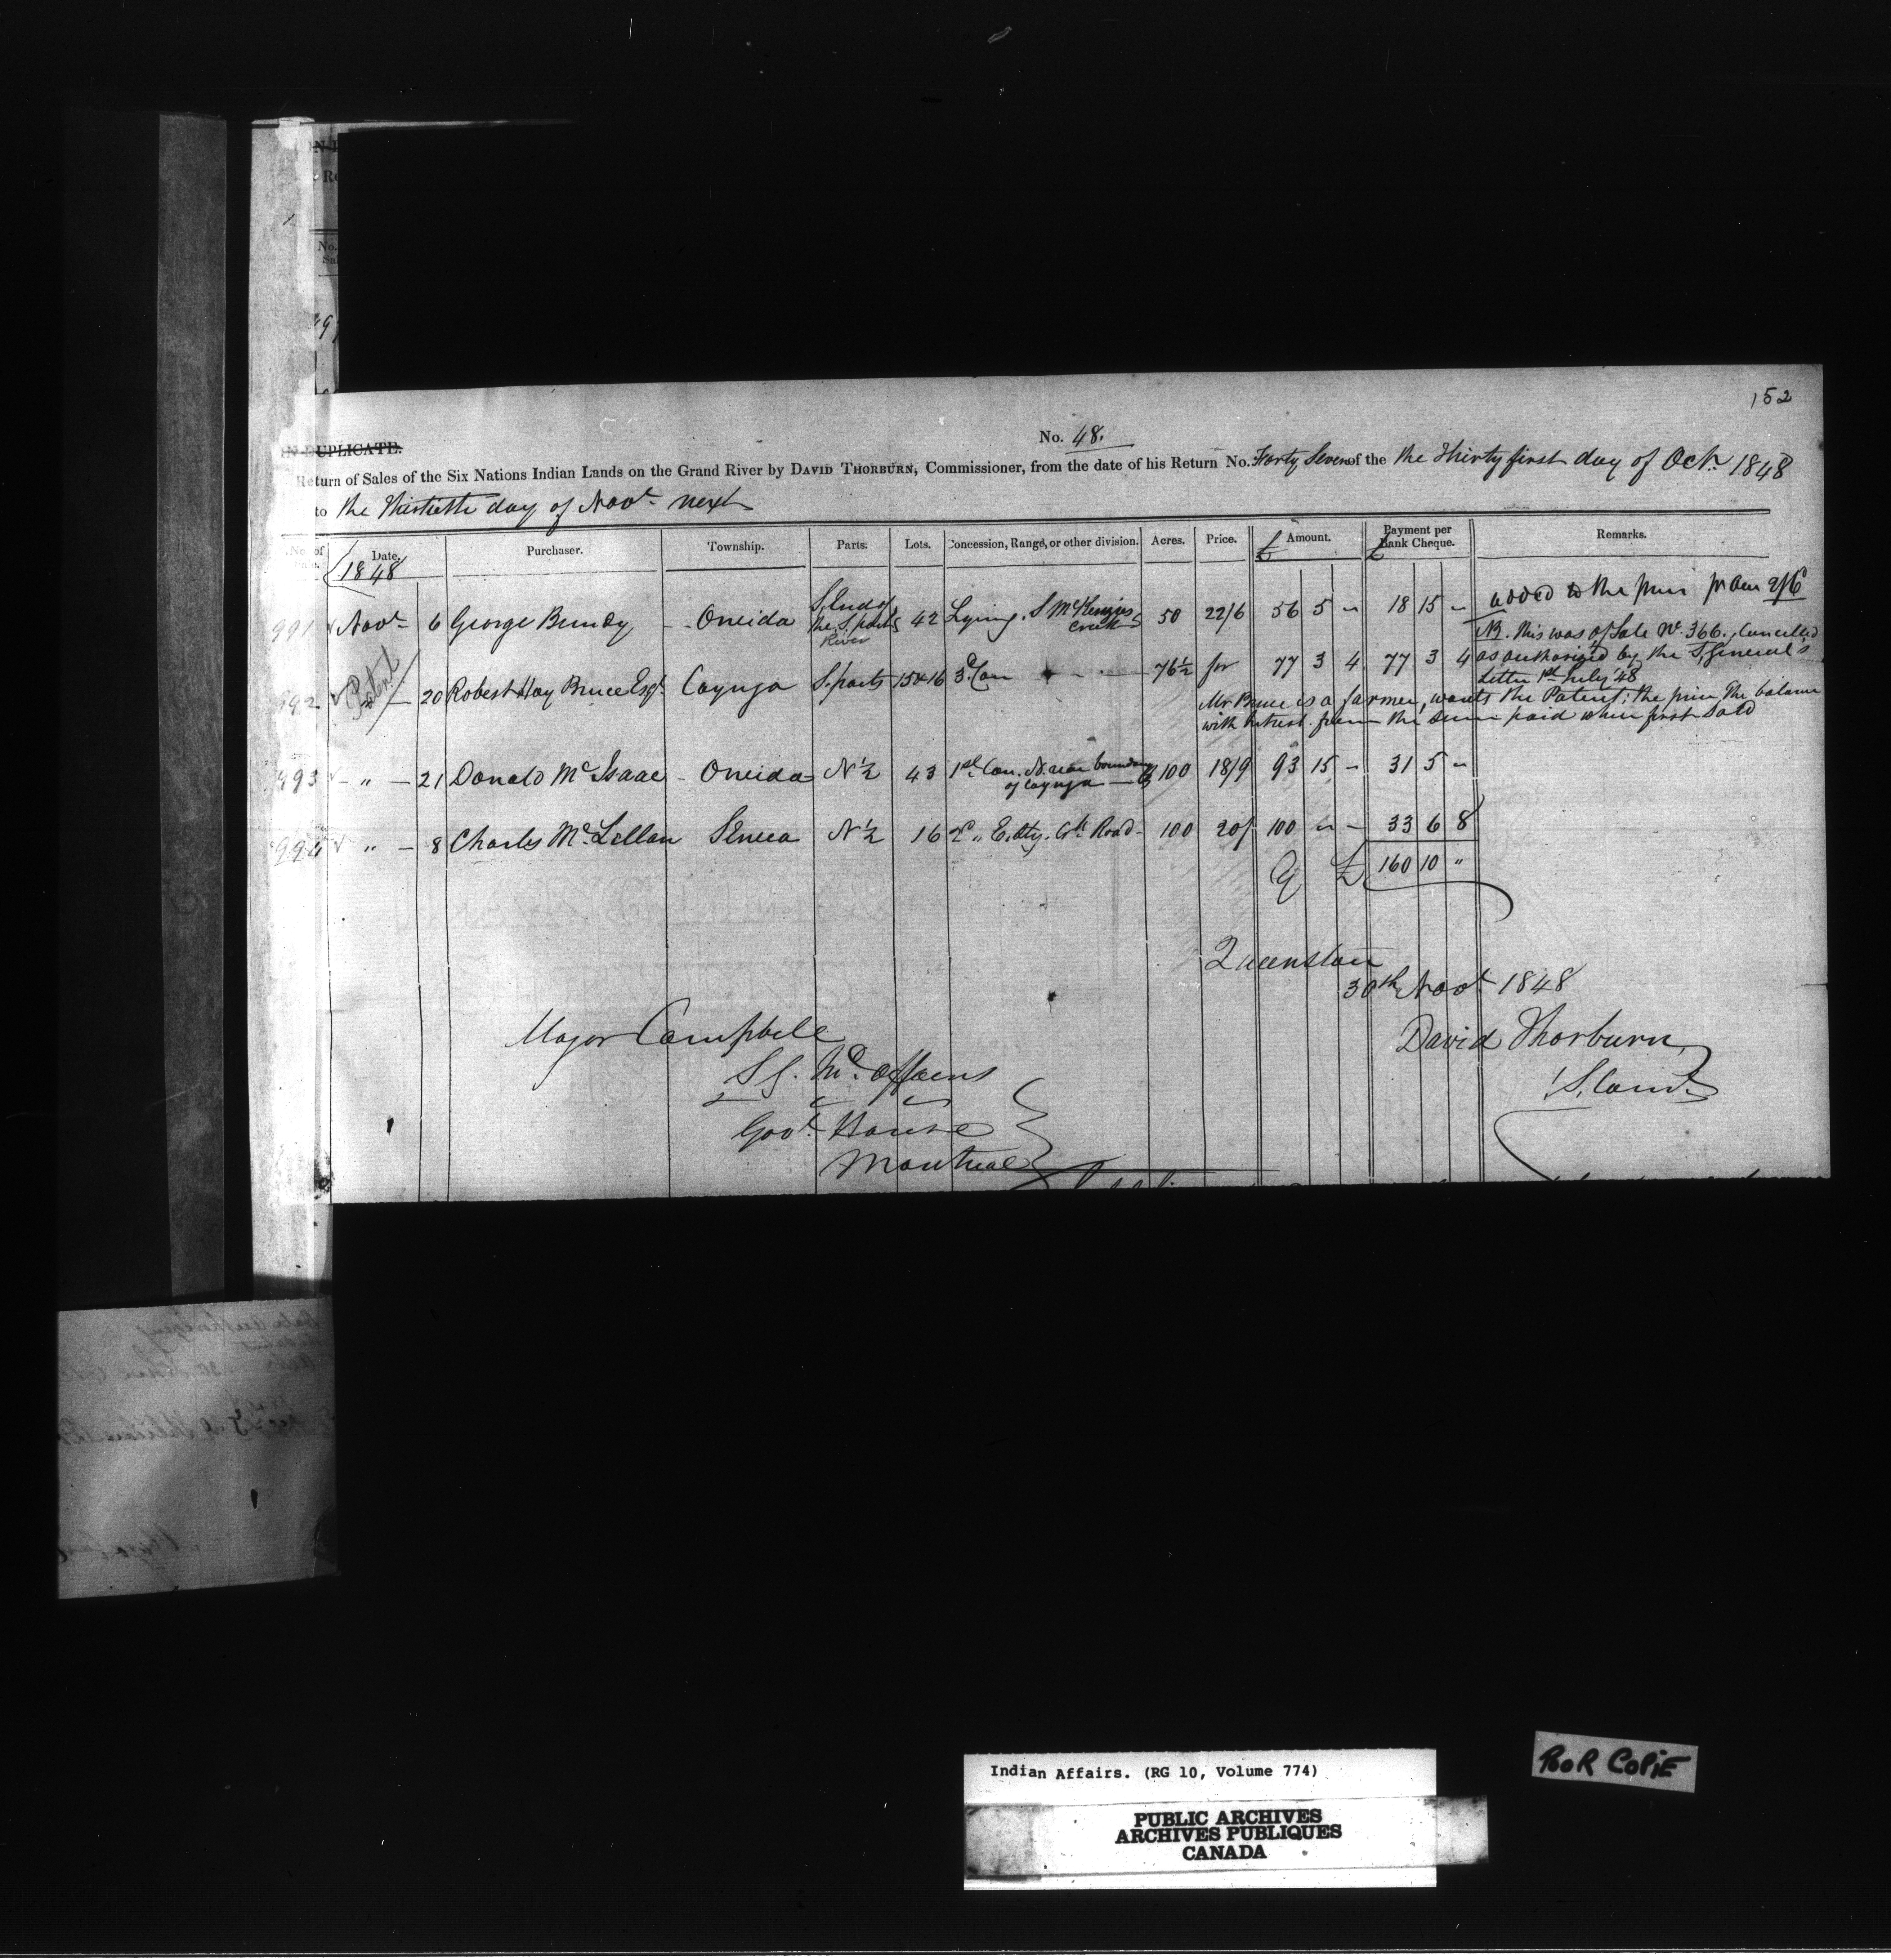 152
No. 48.
IN DUPLICATE.
Return of Sales of the Six Nations Indian Lands on the Grand River by DAVID THORBURN, Commissioner, from the date of his Return No. Forty Seven of the the Thirty first day of Oct. 1848
to the Thirtieth day of Novr. next
No. of Date. Purchaser. Township. Parts. Lots. Concession, Range, or other division. Acres. Price. £ Amount. £ Payment per Bank Cheque. Remarks.
1848
991 Novr 6 George Bundy Oneida S. End of the S. parts River 42 Lying S McKenzies Creek 50 22/6 56 5 " 18 15 " added to the price pr Acre 2/6
NB. this was of Sale No. 366. Cancelled
992 Patent 20 Robert Hay Bruce Esqr. Cayuga S. parts 15 & 16 3d. Con 76½ for 77 3 4 77 3 4 as authorized by the S. General's
Letter 1st July '48
Mr. Bruce is a farmer, wants the Patent; the price the balance
with Interest from the sum paid when first Sold
993 " 21 Donald McIsaac Oneida N ½ 43 1st. Con. N. near boundary of Cayuga 100 18/9 93 15 - 31 5 "
994 " 8 Charles McLellan Seneca N ½ 16 2d " Road 100 20/ 100 " - 33 6 8
£ 160 10 "
Queenston
30th Novr 1848
Major Campbell
David Thorburn
S G. Ind. Affairs
S. Comr.
Govt. House
Montreal
Indian Affairs. (RG 10, Volume 774)
POOR COPIE
PUBLIC ARCHIVES
ARCHIVES PUBLIQUES
CANADA